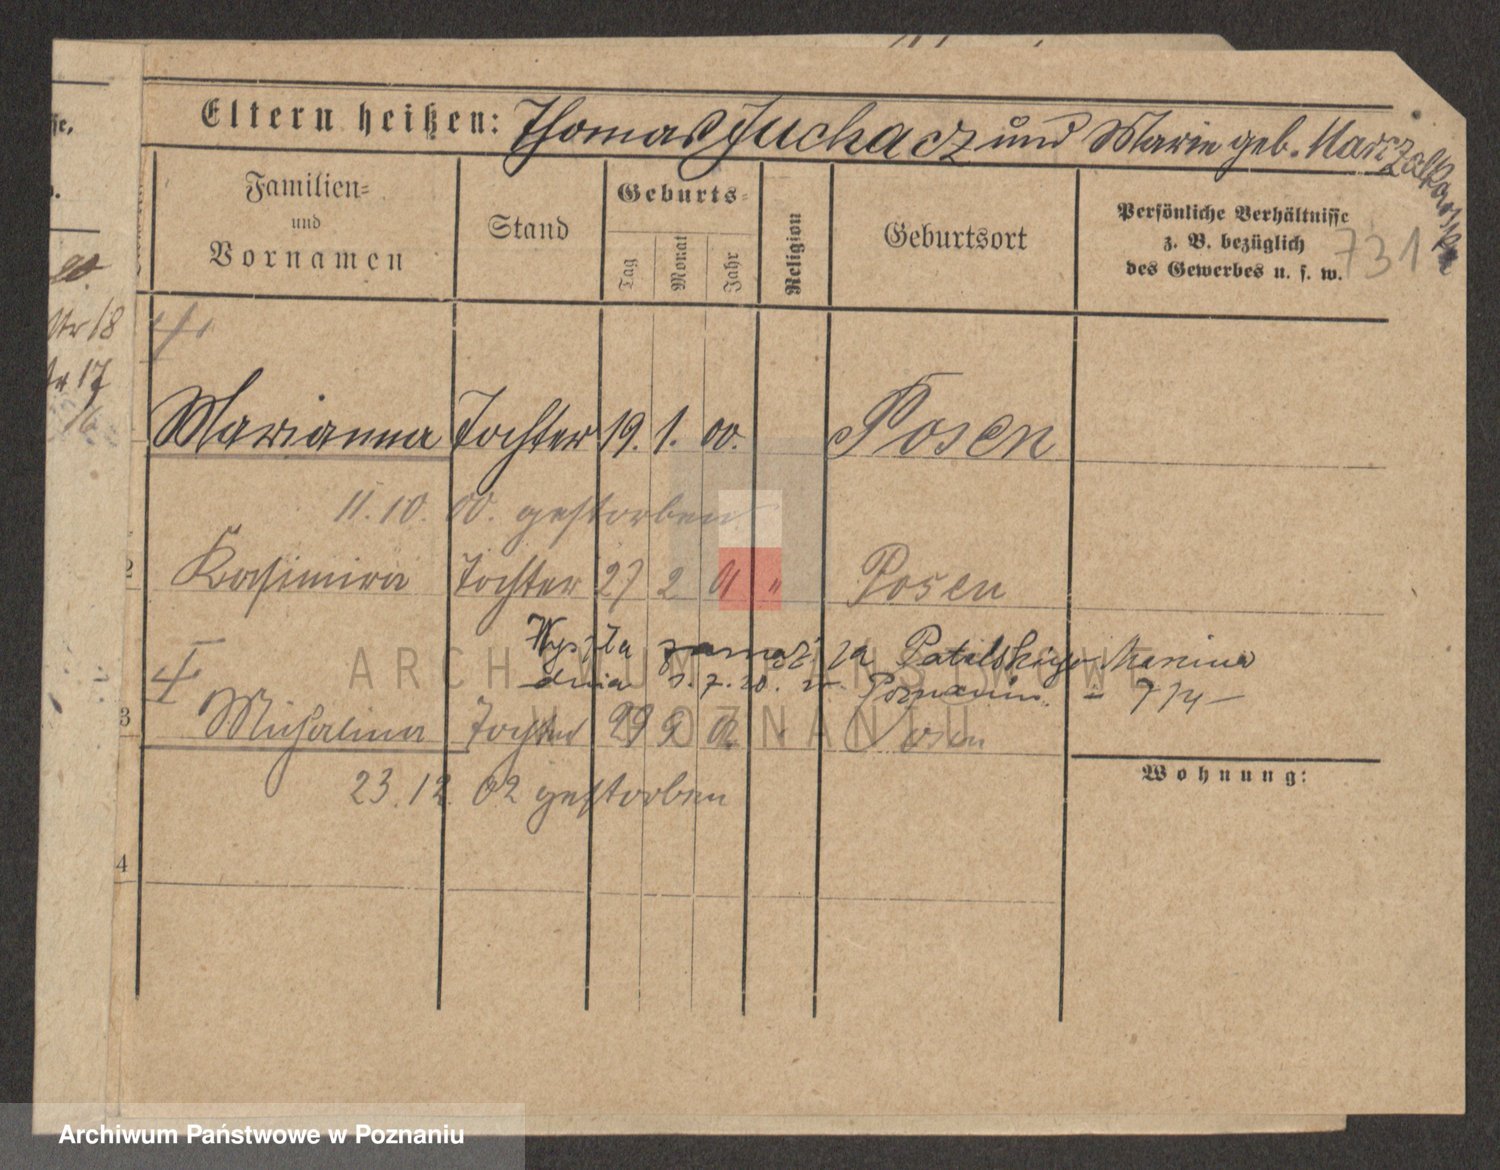 Eltern heißen: Thomas Juchacz und Marie geb. Marczalkowska
Familien=
und
Vornamen
Stand
Geburts=
Tag
Monat
Jahr
Religion
Geburtsort
Persönliche Verhältnisse
z. B. bezüglich
des Gewerbes u. s. w.
731
Str 18
17
16
Marianna Tochter 19. 1. 00. Posen
11. 10. 00. gestorben
2 Kasimira Tochter 27 2 01 " Posen
Wyszła zamąż za Patelskiego Maniua
dnia 7. 20. w Poznaniu
3 Michalina Tochter 29 9 02 Posen
23. 12. 02 gestorben
Wohnung:
4
ARCHIWUM PAŃSTWOWE
W POZNANIU
Archiwum Państwowe w Poznaniu